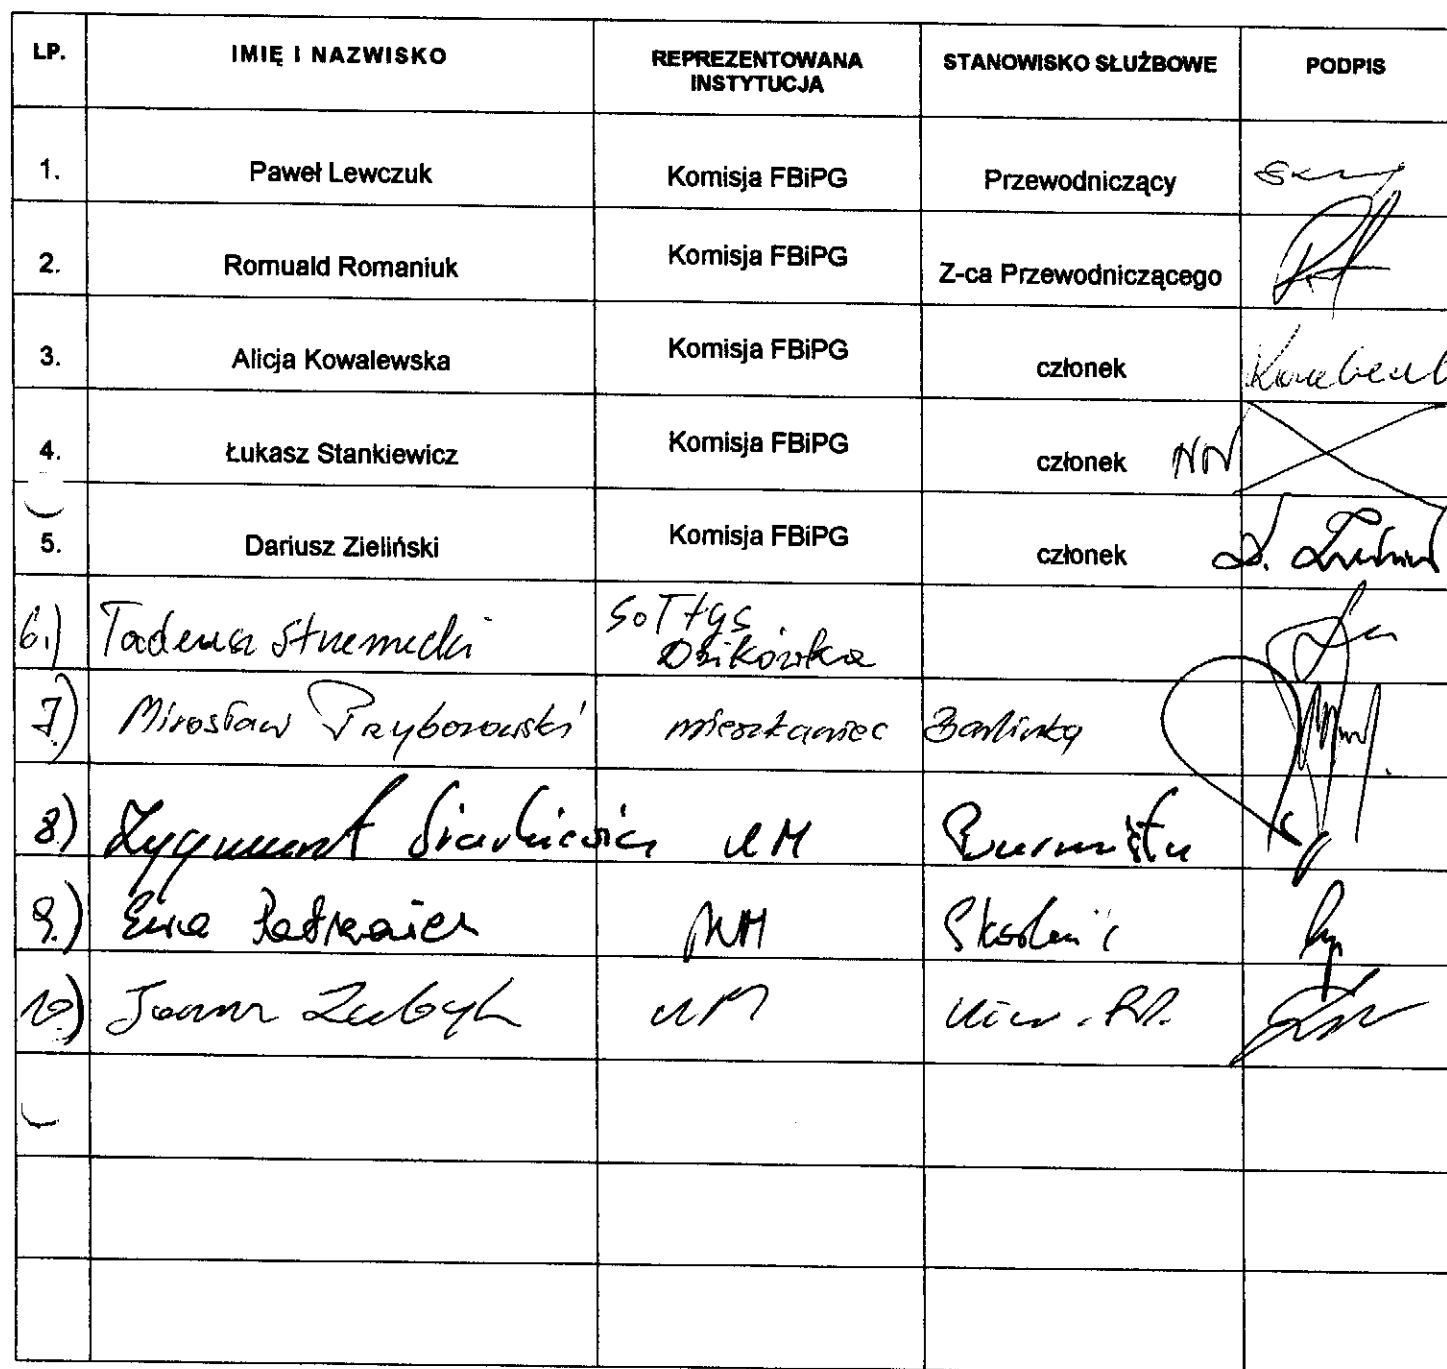 LP. IMIĘ I NAZWISKO REPREZENTOWANA INSTYTUCJA STANOWISKO SŁUŻBOWE PODPIS
1. Paweł Lewczuk Komisja FBiPG Przewodniczący
2. Romuald Romaniuk Komisja FBiPG Z-ca Przewodniczącego
3. Alicja Kowalewska Komisja FBiPG członek
4. Łukasz Stankiewicz Komisja FBiPG członek NN
5. Dariusz Zieliński Komisja FBiPG członek
6.) Tadeusz Sołtys
7.) Mirosław Przyborowski mieszkaniec Barlinka
8.) Zygmunt Siarkiewicz UM Burmistrz
9.) Ewa UM Skarbnik
10.) UM